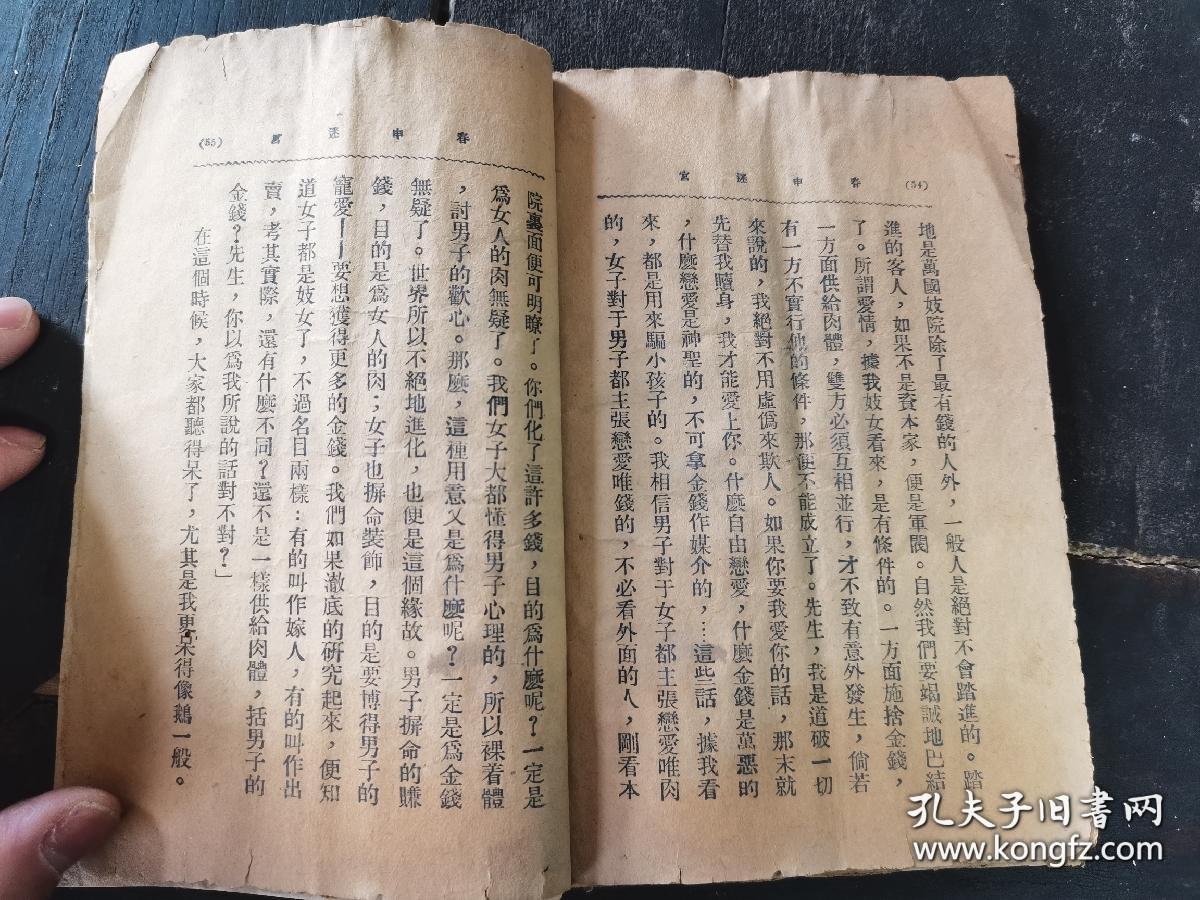 (54)　春申迷宮
地是萬國妓院除了最有錢的人外，一般人是絕對不會踏進的。踏
進的客人，如果不是資本家，便是軍閥。自然我們要竭誠地巴結
了。所謂愛情，據我妓女看來，是有條件的。一方面施捨金錢，
一方面供給肉體，雙方必須互相並行，才不致有意外發生，倘若
有一方不實行他的條件，那便不能成立了。先生，我是道破一切
來說的，我絕對不用虛僞來欺人。如果你要我愛你的話，那末就
先替我贖身，我才能愛上你。什麽自由戀愛，什麽金錢是萬惡的
，什麽戀愛是神聖的，不可拿金錢作媒介的，……這些話，據我看
來，都是用來騙小孩子的。我相信男子對于女子都主張戀愛唯肉
的，女子對于男子都主張戀愛唯錢的，不必看外面的人，剛看本
春申迷宮　(55)
院裏面便可明瞭了。你們化了這許多錢，目的爲什麽呢？一定是
爲女人的肉無疑了。我們女子大都懂得男子心理的，所以裸着體
，討男子的歡心。那麽，這種用意又是爲什麽呢？一定是爲金錢
無疑了。世界所以不絕地進化，也便是這個緣故。男子摒命的賺
錢，目的是爲女人的肉；女子也摒命裝飾，目的是要博得男子的
寵愛——要想獲得更多的金錢。我們如果澈底的研究起來，便知
道女子都是妓女了，不過名目兩樣：有的叫作嫁人，有的叫作出
賣，考其實際，還有什麽不同？還不是一樣供給肉體，括男子的
金錢？先生，你以爲我所說的話對不對？」
在這個時候，大家都聽得呆了，尤其是我更呆得像鵝一般。
孔夫子旧书网
www.kongfz.com